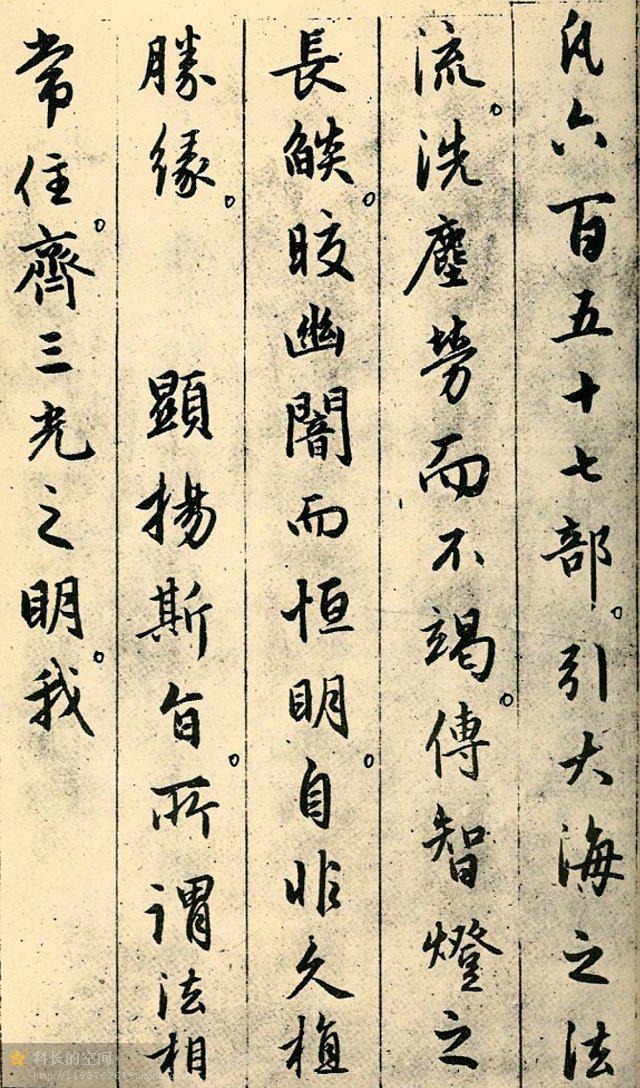 凡六百五十七部。引大海之法
流。洗塵勞而不竭。傳智燈之
長燄。皎幽闇而恒明。自非久植
勝緣。顯揚斯旨。所謂法相
常住。齊三光之明。我
科长的空间